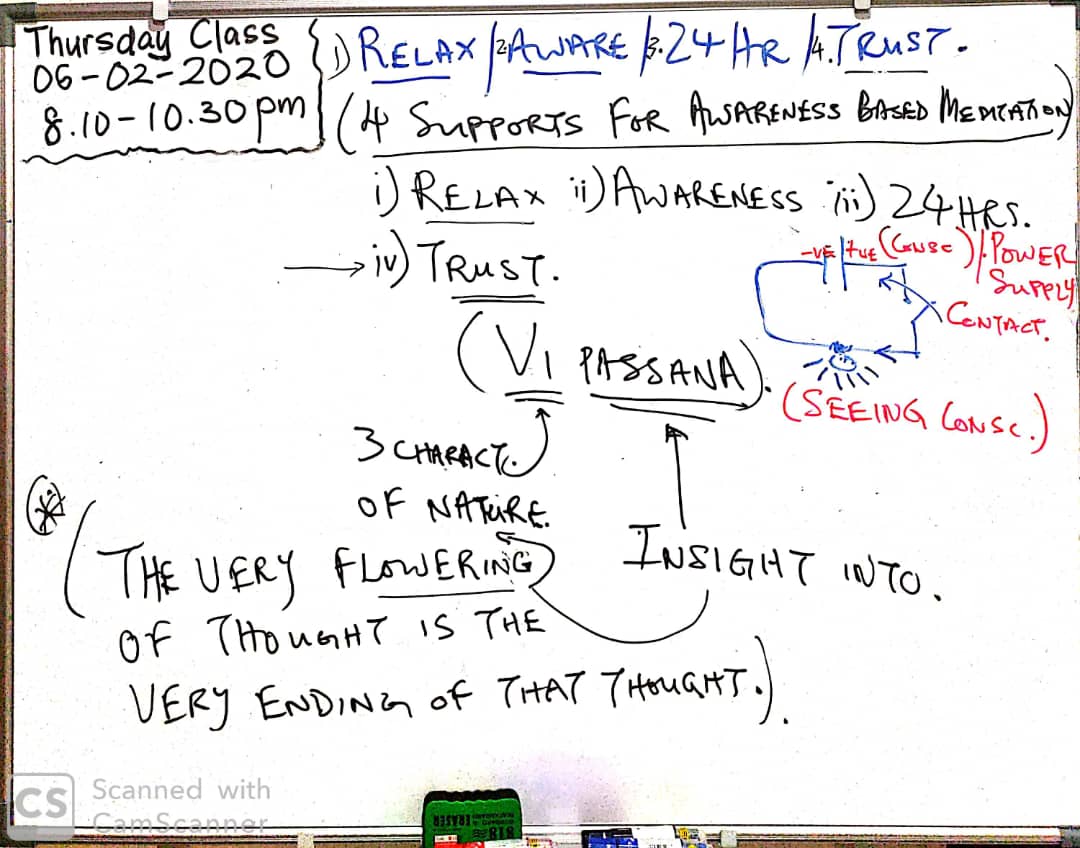 Thursday Class
06-02-2020
8.10-10.30pm
1) RELAX / 2. AWARE / 3. 24 HR / 4. TRUST.
(4 SUPPORTS FOR AWARENESS BASED MEDITATION)
i) RELAX ii) AWARENESS iii) 24 HRS.
→ iv) TRUST.
-VE +VE (CONSC) / POWER
SUPPLY
CONTACT.
(SEEING CONSC.)
(VI PASSANA).
3 CHARACT.
OF NATURE.
INSIGHT INTO.
(THE VERY FLOWERING
OF THOUGHT IS THE
VERY ENDING OF THAT THOUGHT.).
CS Scanned with
CamScanner